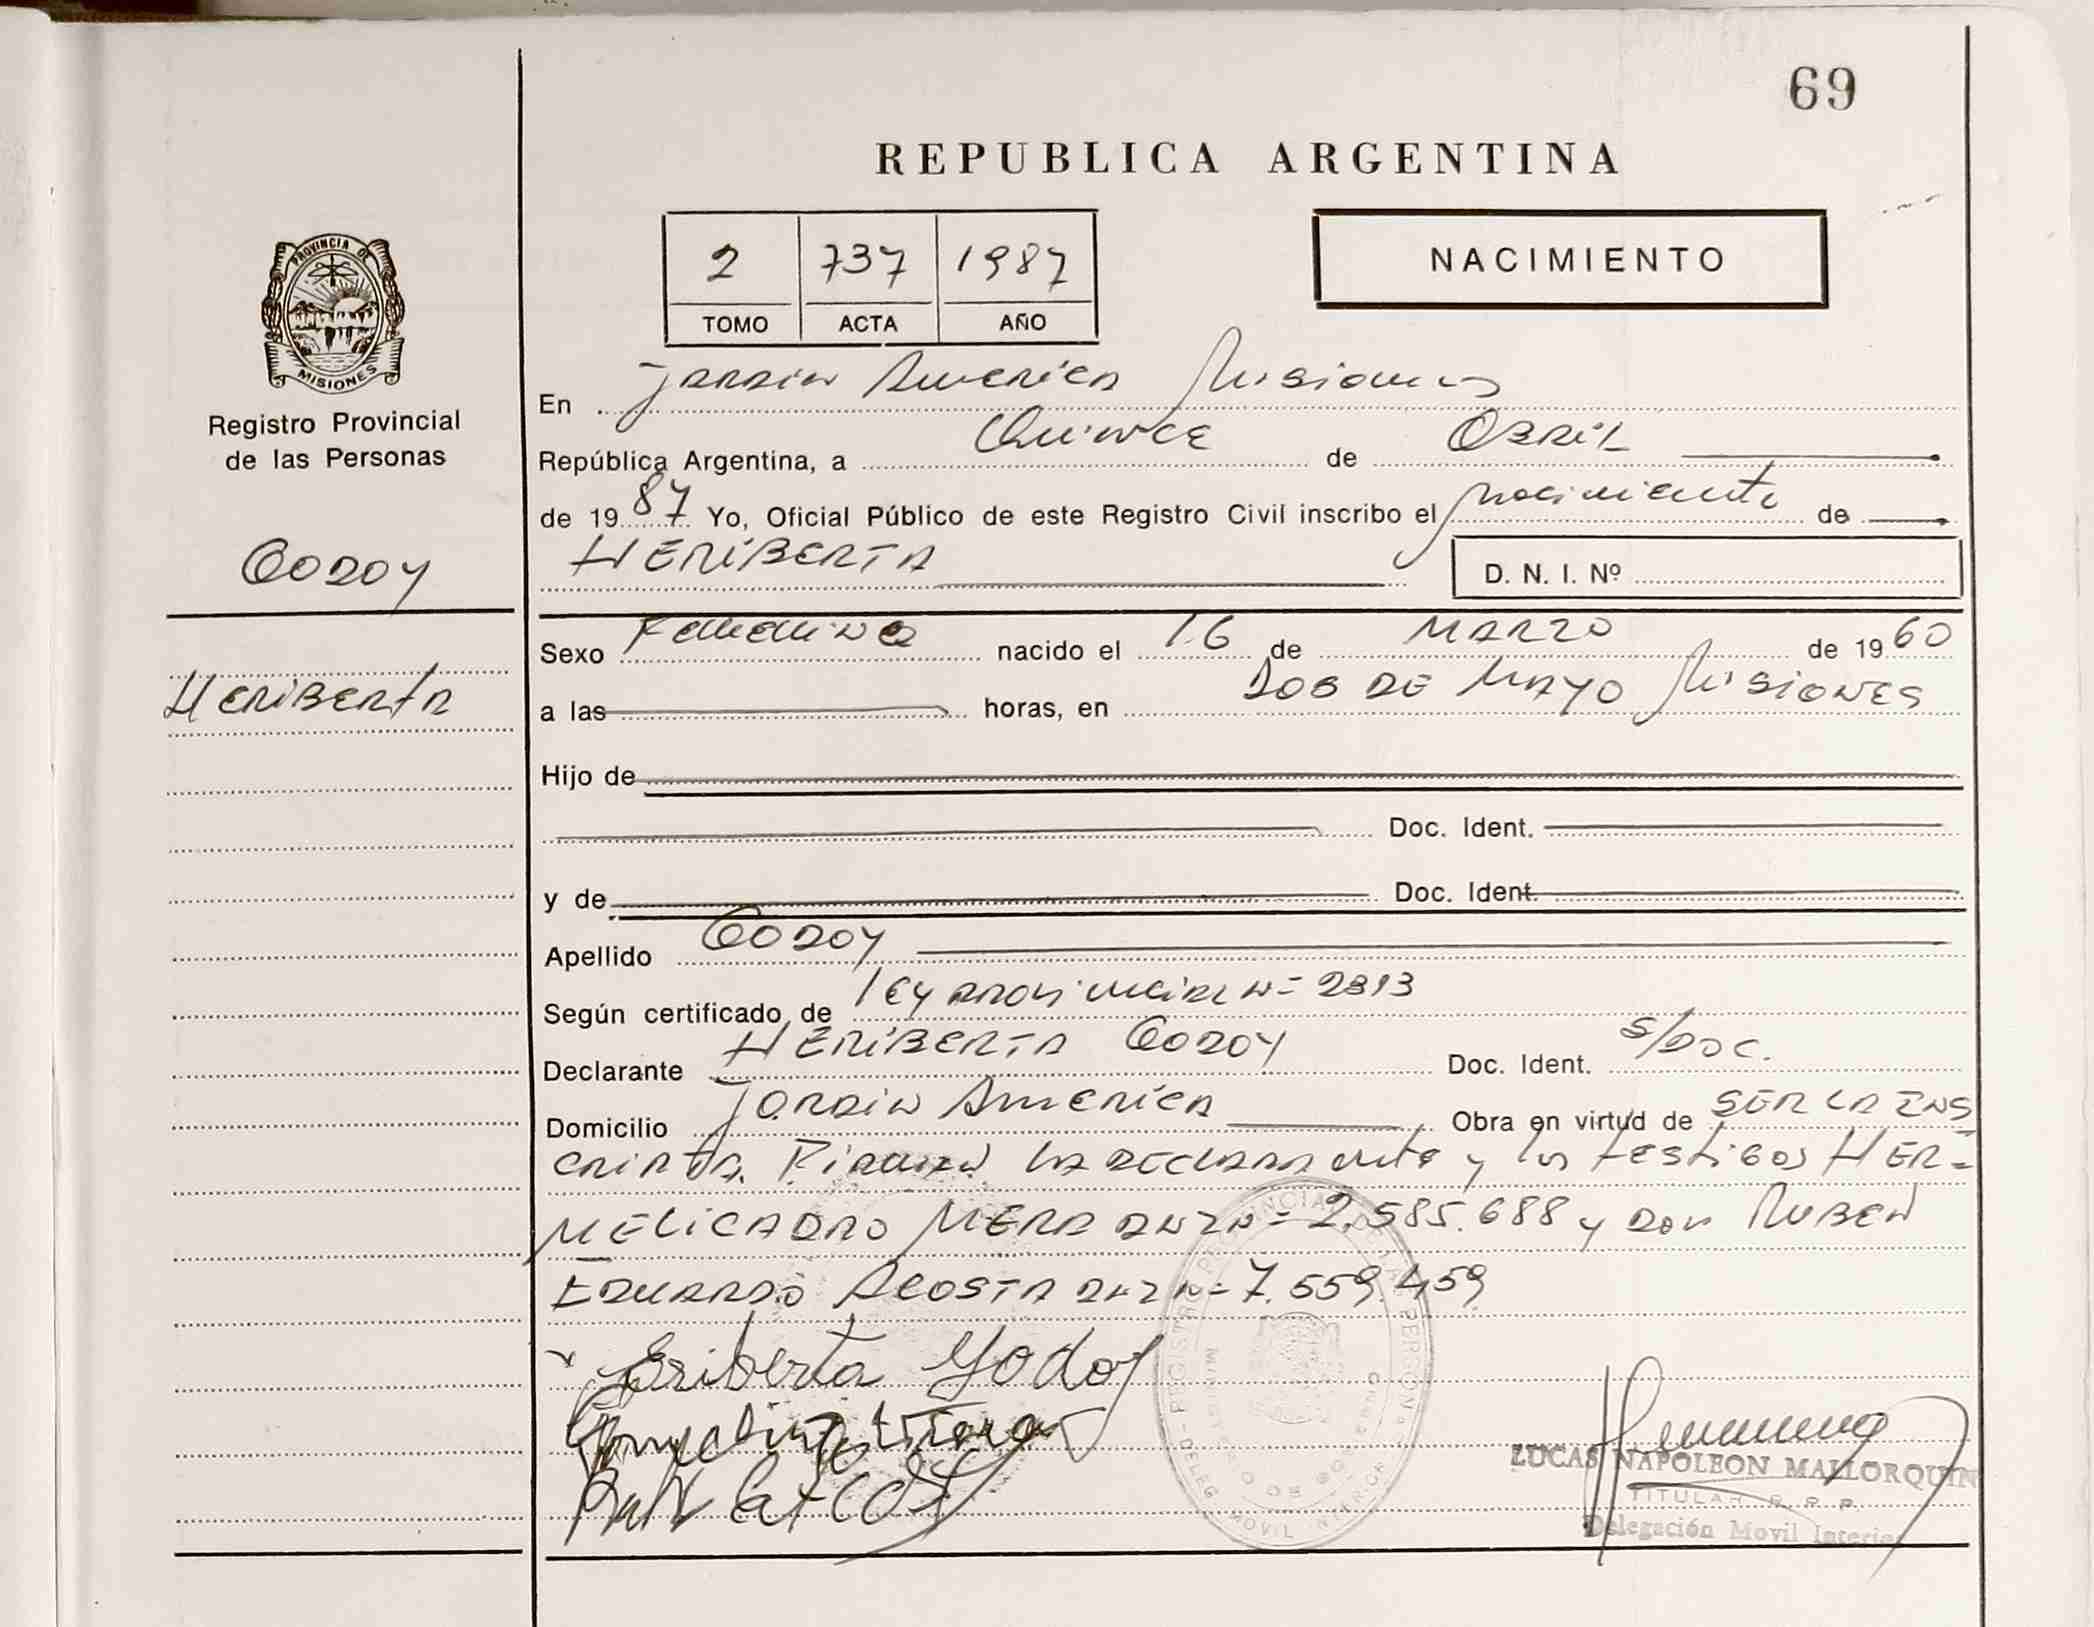 69
REPUBLICA ARGENTINA
2 737 1987
TOMO ACTA AÑO
NACIMIENTO
PROVINCIA DE
MISIONES
Registro Provincial
de las Personas
Godoy
Heriberta
En Jardin America Misiones
República Argentina, a Quince de Abril
de 1987 Yo, Oficial Público de este Registro Civil inscribo el nacimiento de
HERIBERTA
D. N. I. Nº
Sexo Femenino nacido el 16 de MARZO de 1960
a las horas, en DOS DE MAYO MISIONES
Hijo de
Doc. Ident.
y de Doc. Ident.
Apellido GODOY
Según certificado de ley provincial N= 2813
Declarante HERIBERTA GODOY Doc. Ident. S/DOC.
Domicilio Jardin America Obra en virtud de SER LA INS
CRIPTA. Firman la declarante y los testigos HER=
MELICADRO MERA DNI N= 2.585.688 y don RUBEN
EDUARDO ACOSTA DNI N= 7.559.459
Eriberta Godoy
LUCAS NAPOLEON MALLORQUIN
TITULAR R. P. P.
Delegación Movil Interior